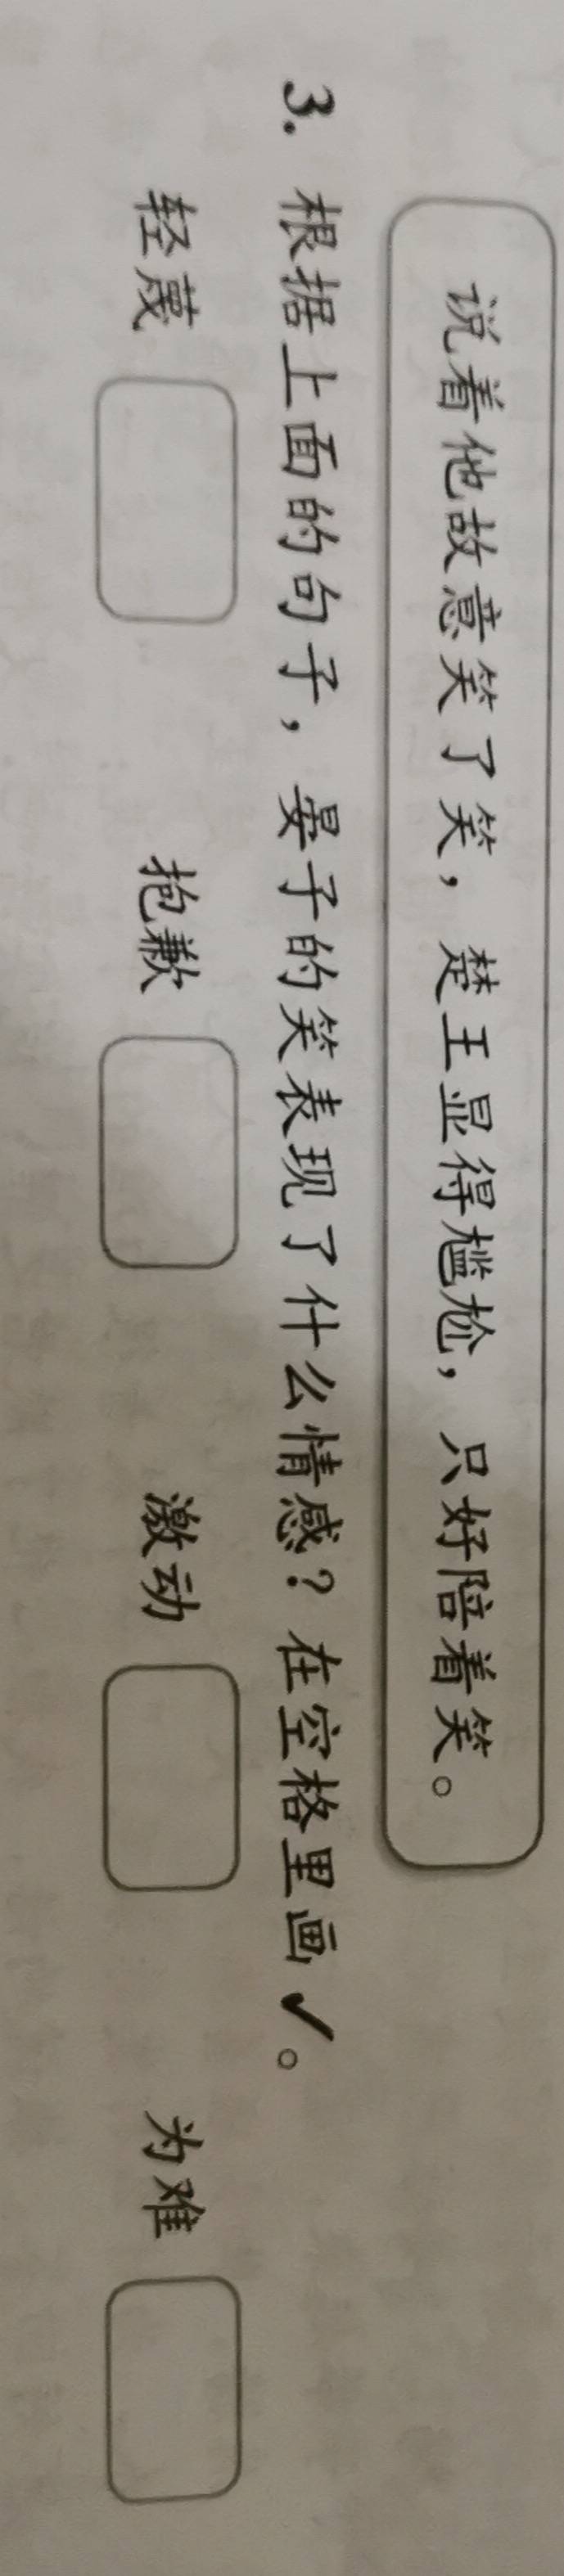 说着他故意笑了笑，楚王显得尴尬，只好陪着笑。
3. 根据上面的句子，晏子的笑表现了什么情感？在空格里画✓。
轻蔑 抱歉 激动 为难